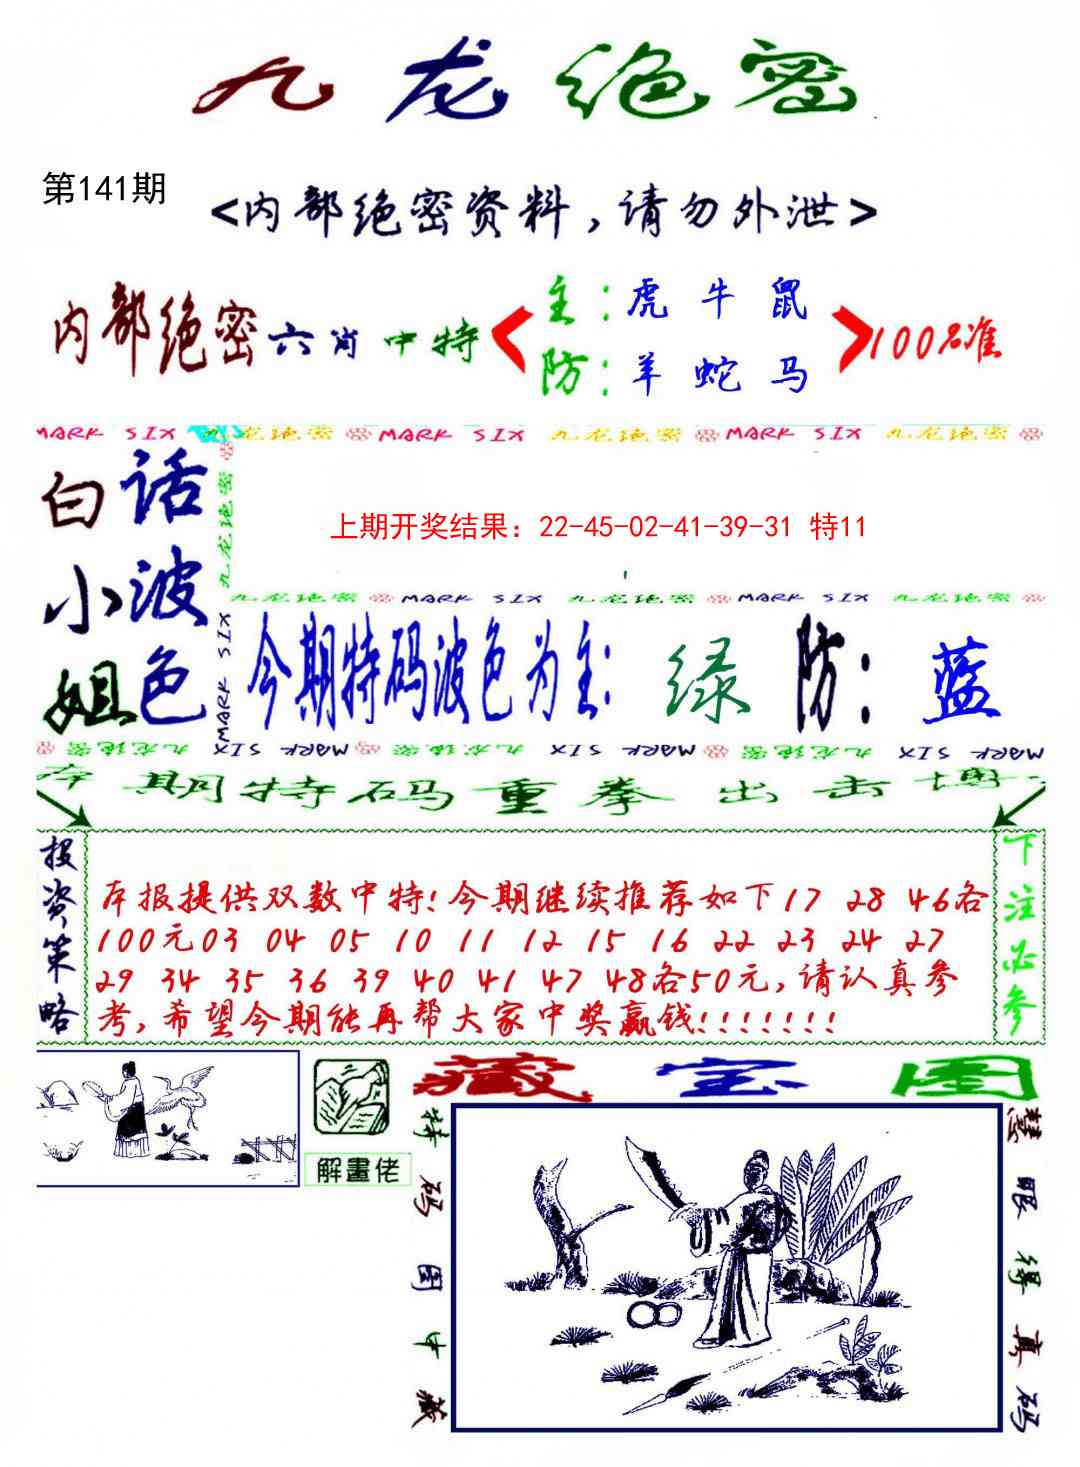 九龙绝密
第141期
<内部绝密资料,请勿外泄>
内部绝密六肖中特
主:虎 牛 鼠
防:羊 蛇 马
100%准
MARK SIX 九龙绝密 MARK SIX 九龙绝密 MARK SIX 九龙绝密
白小姐
话波色
九龙绝密
MARK SIX
上期开奖结果：22-45-02-41-39-31 特11
九龙绝密 MARK SIX 九龙绝密 MARK SIX 九龙绝密
今期特码波色为主: 绿 防: 蓝
九龙绝密 MARK SIX 九龙绝密 MARK SIX 九龙绝密 MARK SIX
本期特码重拳出击博
投资策略
本报提供双数中特!今期继续推荐如下17 28 46各
100元03 04 05 10 11 12 15 16 22 23 24 27
29 34 35 36 39 40 41 47 48各50元,请认真参
考,希望今期能再帮大家中奖赢钱!!!!!!!
下注必参
解畫佬
藏宝图
特码图中藏
慧眼得真码